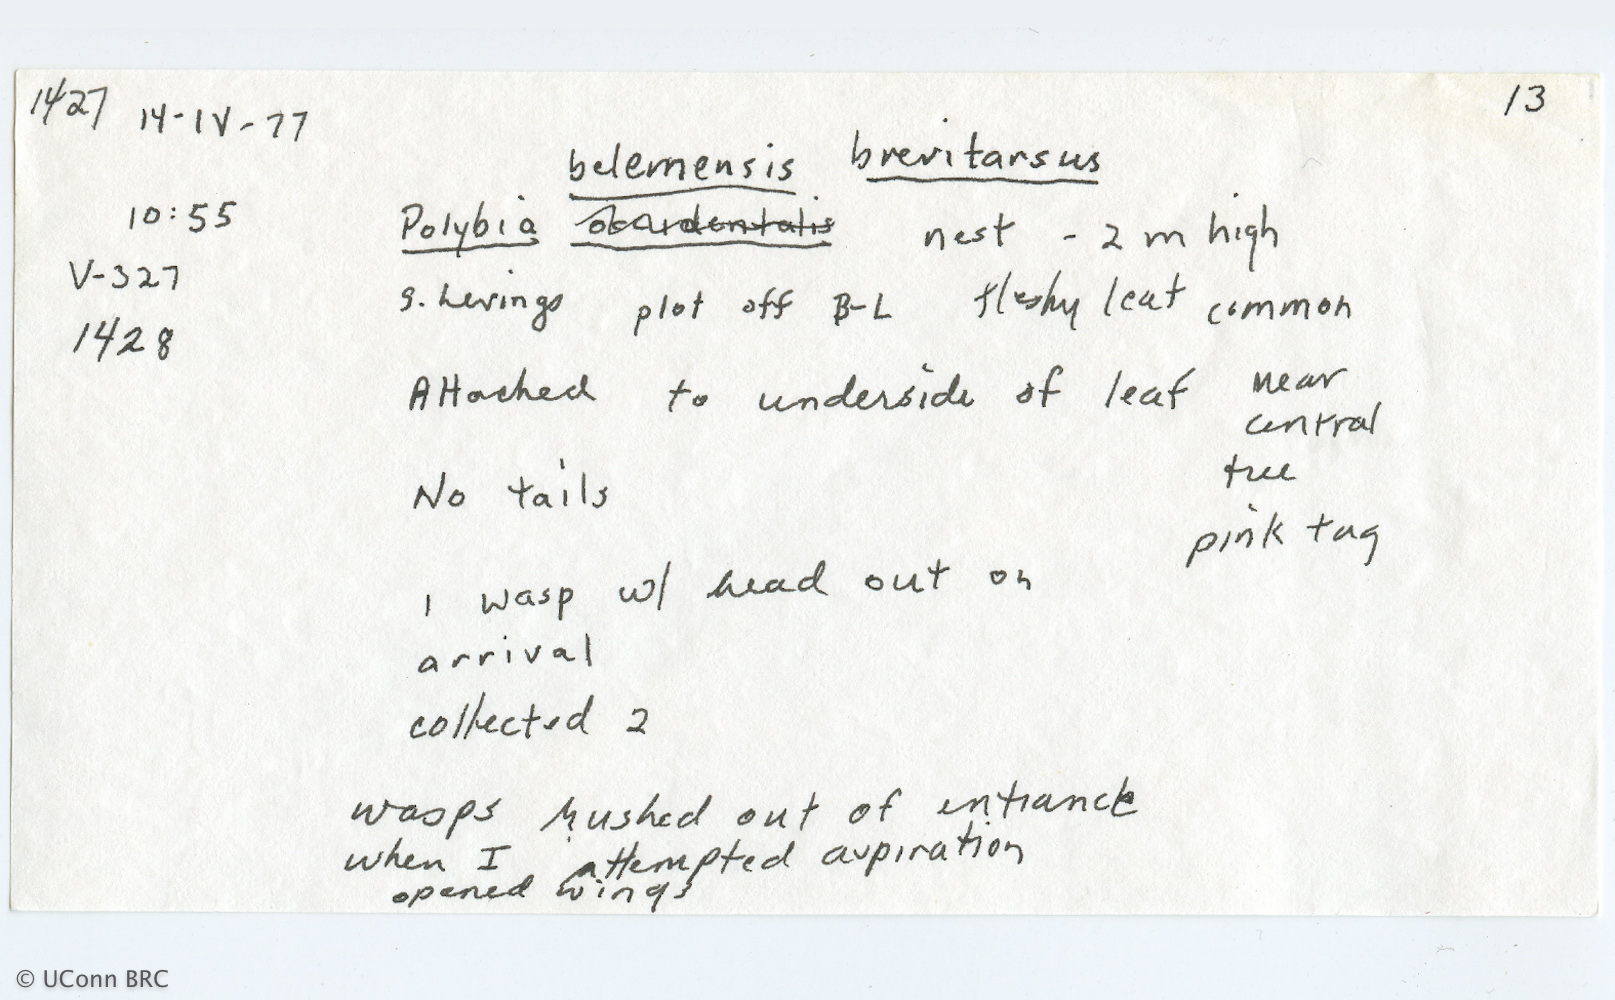 1427 14-IV-77 13
belemensis brevitarsus
10:55 Polybia occidentalis nest - 2 m high
V-327 S. Levings plot off B-L fleshy leaf common
1428
Attached to underside of leaf near
central
No tails tree
pink tag
1 wasp w/ head out on
arrival
collected 2
wasps rushed out of entrance
when I attempted aspiration
opened wings
© UConn BRC